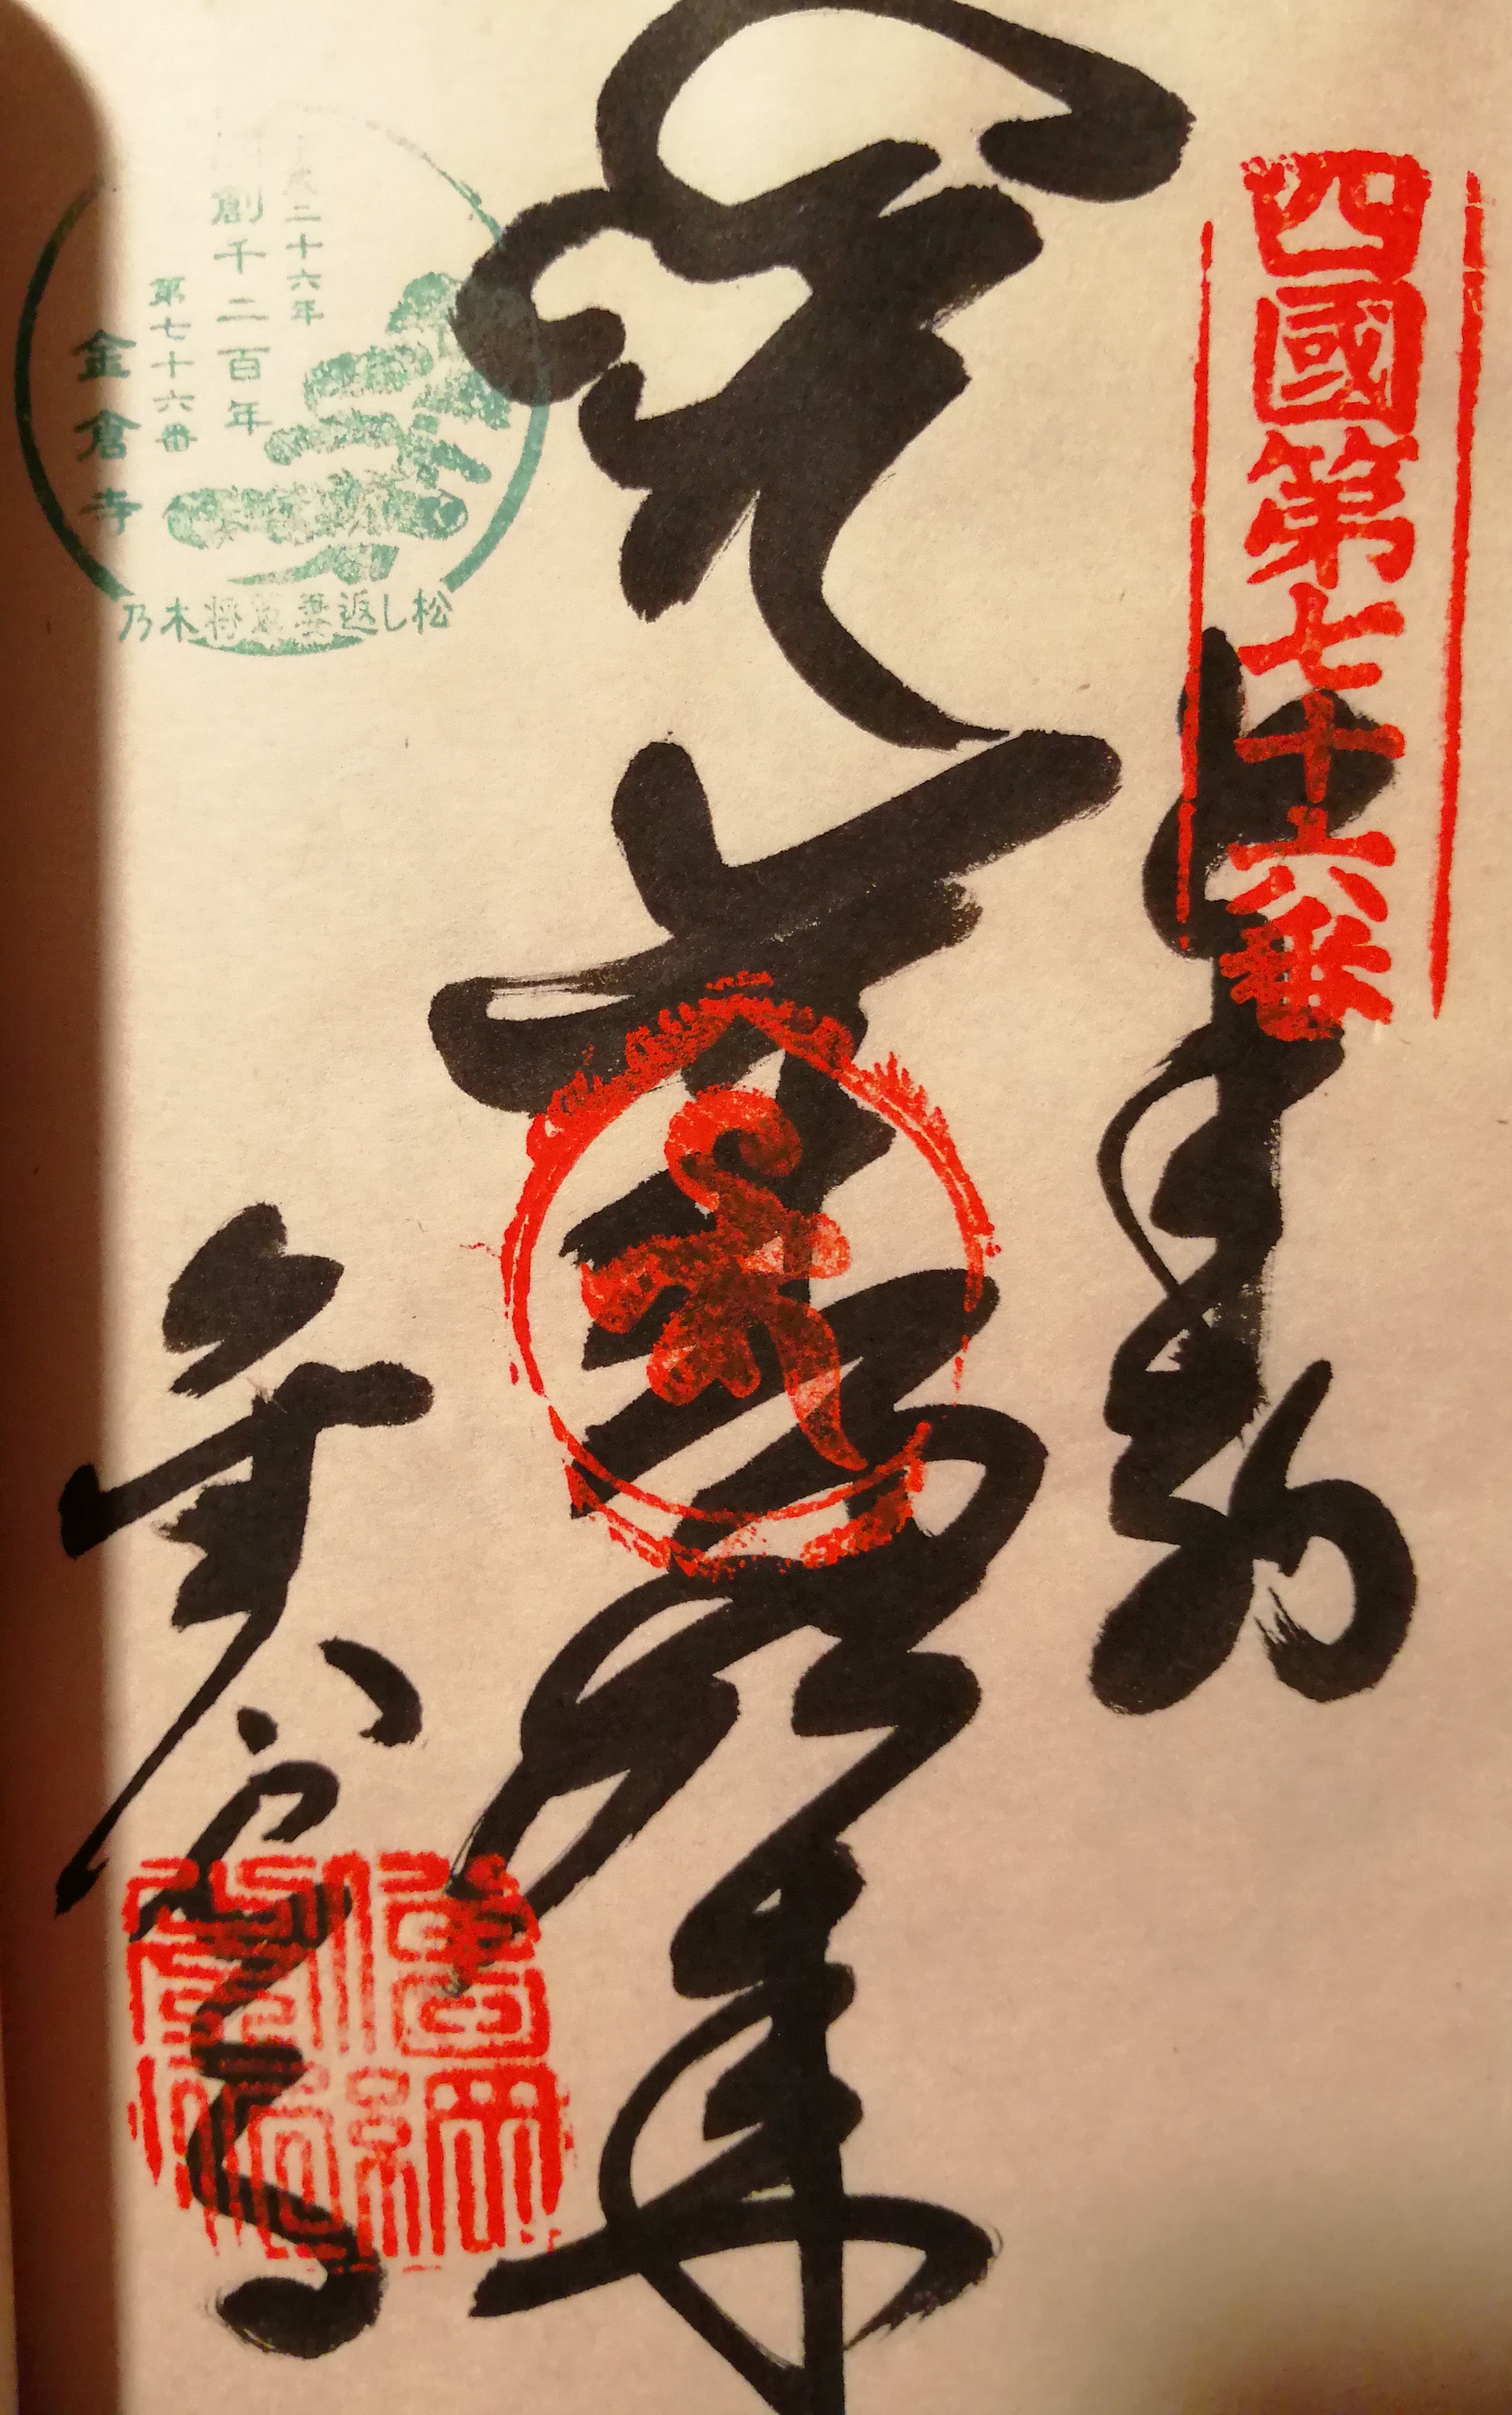 四國第七十六番
奉納
薬師如来
金倉寺
平成二十六年
開創千二百年
第七十六番
金倉寺
乃木将軍妻返し松